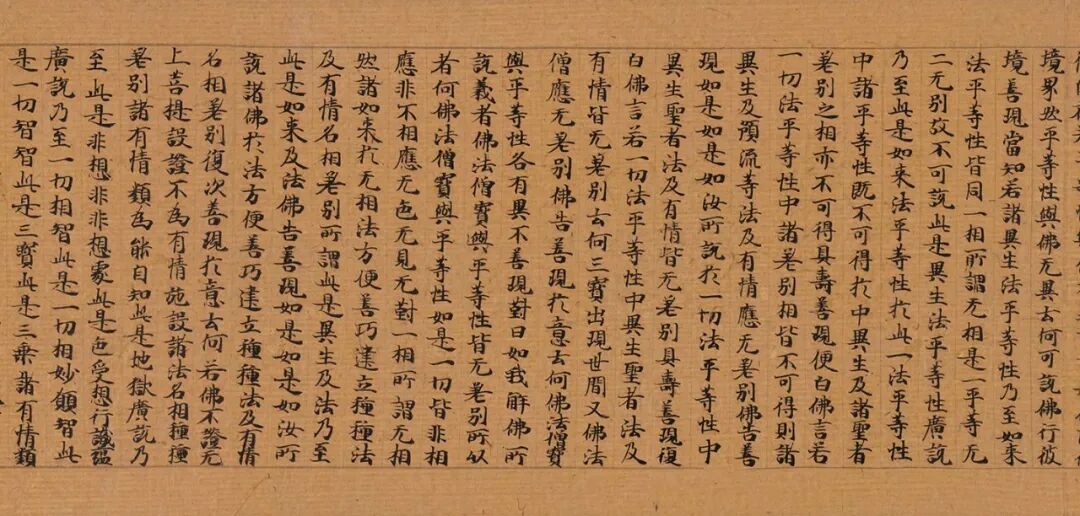 境界然平等性與佛无異云何可說佛行彼
境善現當知若諸異生法平等性乃至如來
法平等性皆同一相所謂无相是一平等无
二无別故不可說此是異生法平等性廣說
乃至此是如來法平等性於此一法平等性
中諸平等性既不可得於中異生及諸聖者
差別之相亦不可得具壽善現便白佛言若
一切法平等性中諸差別相皆不可得則諸
異生及預流等法及有情應无差別佛告善
現如是如是如汝所說於一切法平等性中
異生聖者法及有情皆无差別具壽善現復
白佛言若一切法平等性中異生聖者法及
有情皆无差別云何三寶出現世間又佛法
僧應无差別佛告善現於意云何佛法僧寶
與平等性各有異不善現對曰如我解佛所
說義者佛法僧寶與平等性皆无差別所以
者何佛法僧寶與平等性如是一切皆非相
應非不相應无色无見无對一相所謂无相
然諸如來於无相法方便善巧建立種種法
及有情名相差別所謂此是異生及法乃至
此是如來及法佛告善現如是如是如汝所
說諸佛於法方便善巧建立種種法及有情
名相差別復次善現於意云何若佛不證无
上菩提設證不為有情施設諸法名相種種
差別諸有情類為能自知此是地獄廣說乃
至此是非想非非想處此是色受想行識蘊
廣說乃至一切相智此是一切相妙願智此
是一切智智此是三寶此是三乘諸有情類